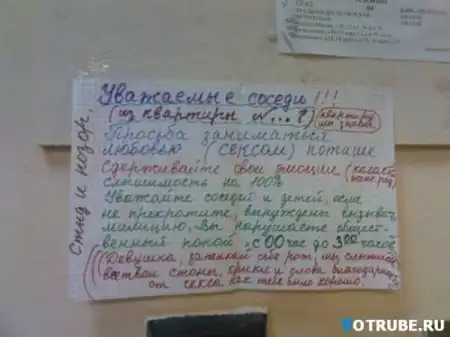 Уважаемые соседи!!!
(из квартиры №...?) (квартиру мы знаем)
Просьба заниматься
любовью (сексом) потише
Сдерживайте свои эмоции
слышимость на 100%
Уважайте соседей и детей, если
не прекратите, вынуждены вызвать
милицию, Вы нарушаете общест-
венный покой "с 00 час до 3 00 часов
(Девушка, затыкай себе рот, мы слышим
все твои стоны, крики и слова
от секса как тебе было хорошо.
Стыд и позор
VOTRUBE.RU